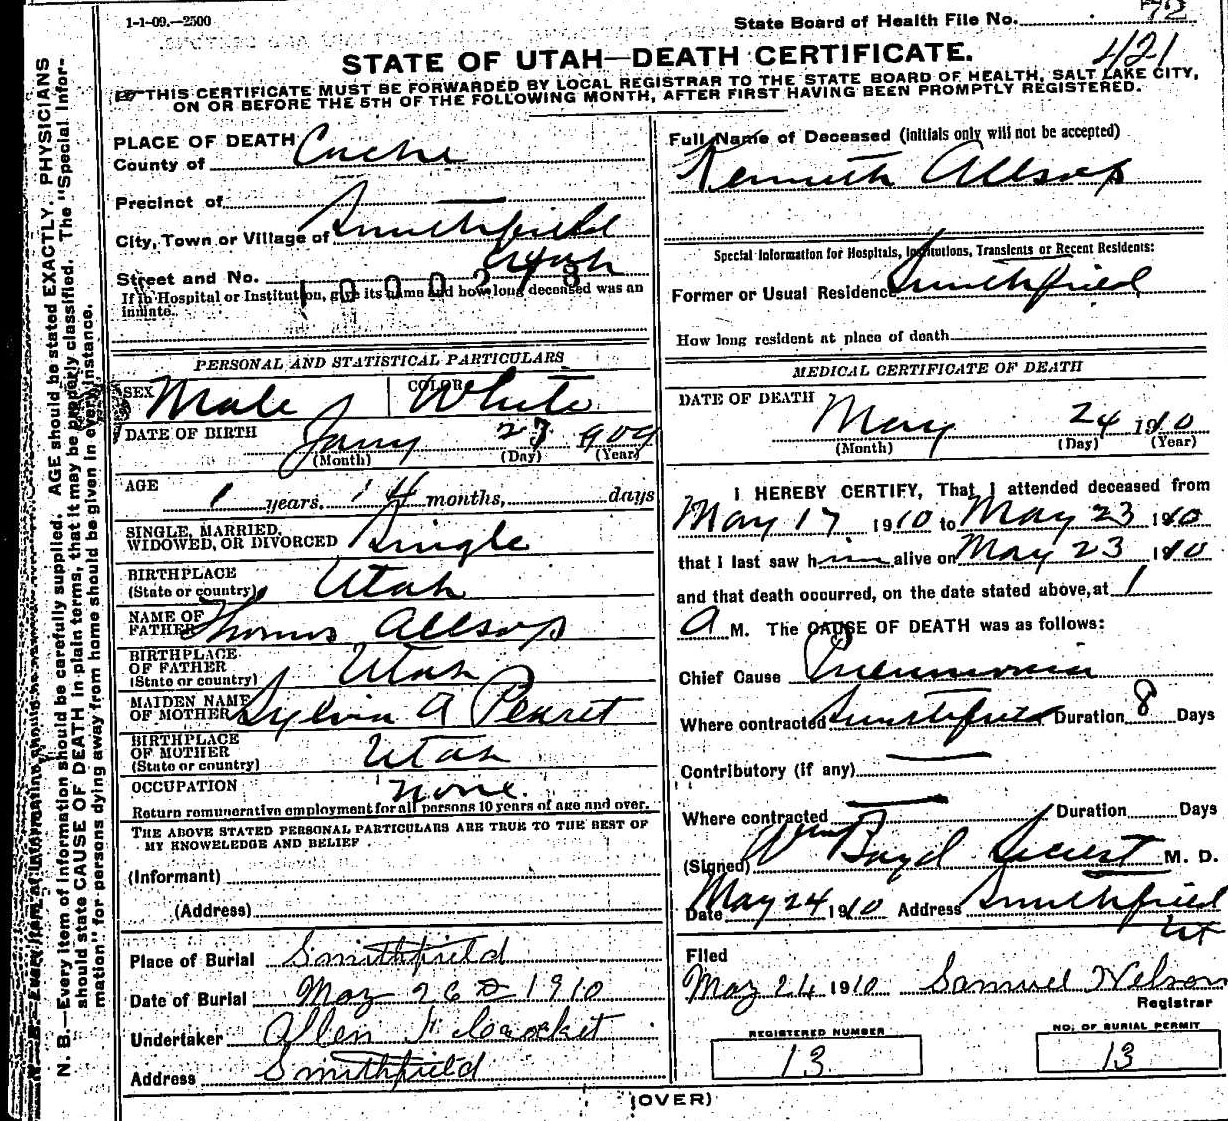 1-1-09.—2500
State Board of Health File No. 72
421
STATE OF UTAH—DEATH CERTIFICATE.
THIS CERTIFICATE MUST BE FORWARDED BY LOCAL REGISTRAR TO THE STATE BOARD OF HEALTH, SALT LAKE CITY,
ON OR BEFORE THE 5TH OF THE FOLLOWING MONTH, AFTER FIRST HAVING BEEN PROMPTLY REGISTERED.
N. B.—Every item of information should be carefully supplied. AGE should be stated EXACTLY. PHYSICIANS
should state CAUSE OF DEATH in plain terms, that it may be properly classified. The "Special Infor-
mation" for persons dying away from home should be given in every instance.
PLACE OF DEATH
County of Cache
Precinct of
City, Town or Village of Smithfield
Utah
Street and No.
1000278
If in Hospital or Institution, give its name and how long deceased was an
inmate.
PERSONAL AND STATISTICAL PARTICULARS
SEX Male COLOR White
DATE OF BIRTH Jany 23 1909
(Month) (Day) (Year)
AGE 1 years, 4 months, days
SINGLE, MARRIED,
WIDOWED, OR DIVORCED Single
BIRTHPLACE
(State or country) Utah
NAME OF
FATHER Thomas Allsop
BIRTHPLACE
OF FATHER
(State or country) Utah
MAIDEN NAME
OF MOTHER Sylvia A
BIRTHPLACE
OF MOTHER
(State or country) Utah
OCCUPATION None.
Return remunerative employment for all persons 10 years of age and over.
THE ABOVE STATED PERSONAL PARTICULARS ARE TRUE TO THE BEST OF
MY KNOWELEDGE AND BELIEF
(Informant)
(Address)
Place of Burial Smithfield
Date of Burial May 26 1910
Undertaker Allen
Address Smithfield
Full Name of Deceased (initials only will not be accepted)
Kenneth Allsop
Special Information for Hospitals, Institutions, Transients or Recent Residents:
Former or Usual Residence Smithfield
How long resident at place of death
MEDICAL CERTIFICATE OF DEATH
DATE OF DEATH May 24 1910
(Month) (Day) (Year)
I HEREBY CERTIFY, That I attended deceased from
May 17 1910 to May 23 1910
that I last saw him alive on May 23 1910
and that death occurred, on the date stated above, at 1
A M. The CAUSE OF DEATH was as follows:
Chief Cause Pneumonia
Where contracted Smithfield Duration 8 Days
Contributory (if any)
Where contracted Duration Days
(Signed) Wm Boyd M. D.
Date May 24 1910 Address Smithfield
Ut
Filed
May 24 1910 Samuel Nelson
Registrar
REGISTERED NUMBER
13
NO. OF BURIAL PERMIT
13
(OVER)